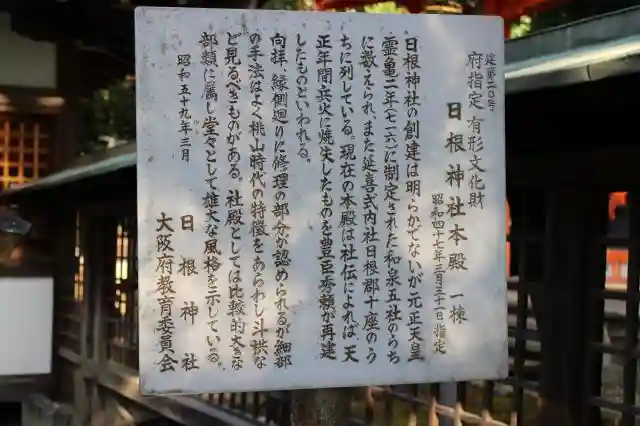 建第二〇号
府指定 有形文化財
日根神社本殿 一棟
昭和四十七年三月三十一日指定
日根神社の創建は明らかでないが、元正天皇
霊亀二年(七一六)に制定された和泉五社のうち
に数えられ、また延喜式内社日根郡十座のう
ちに列している。現在の本殿は社伝によれば、天
正年間兵火に焼失したものを豊臣秀頼が再建
したものといわれる。
向拝、縁側廻りに修理の部分が認められるが、細部
の手法はよく桃山時代の特徴をあらわし、斗栱な
ど見るべきものがある。社殿としては比較的大きな
部類に属し、堂々として雄大な風格を示している。
昭和五十九年三月
日根神社
大阪府教育委員会